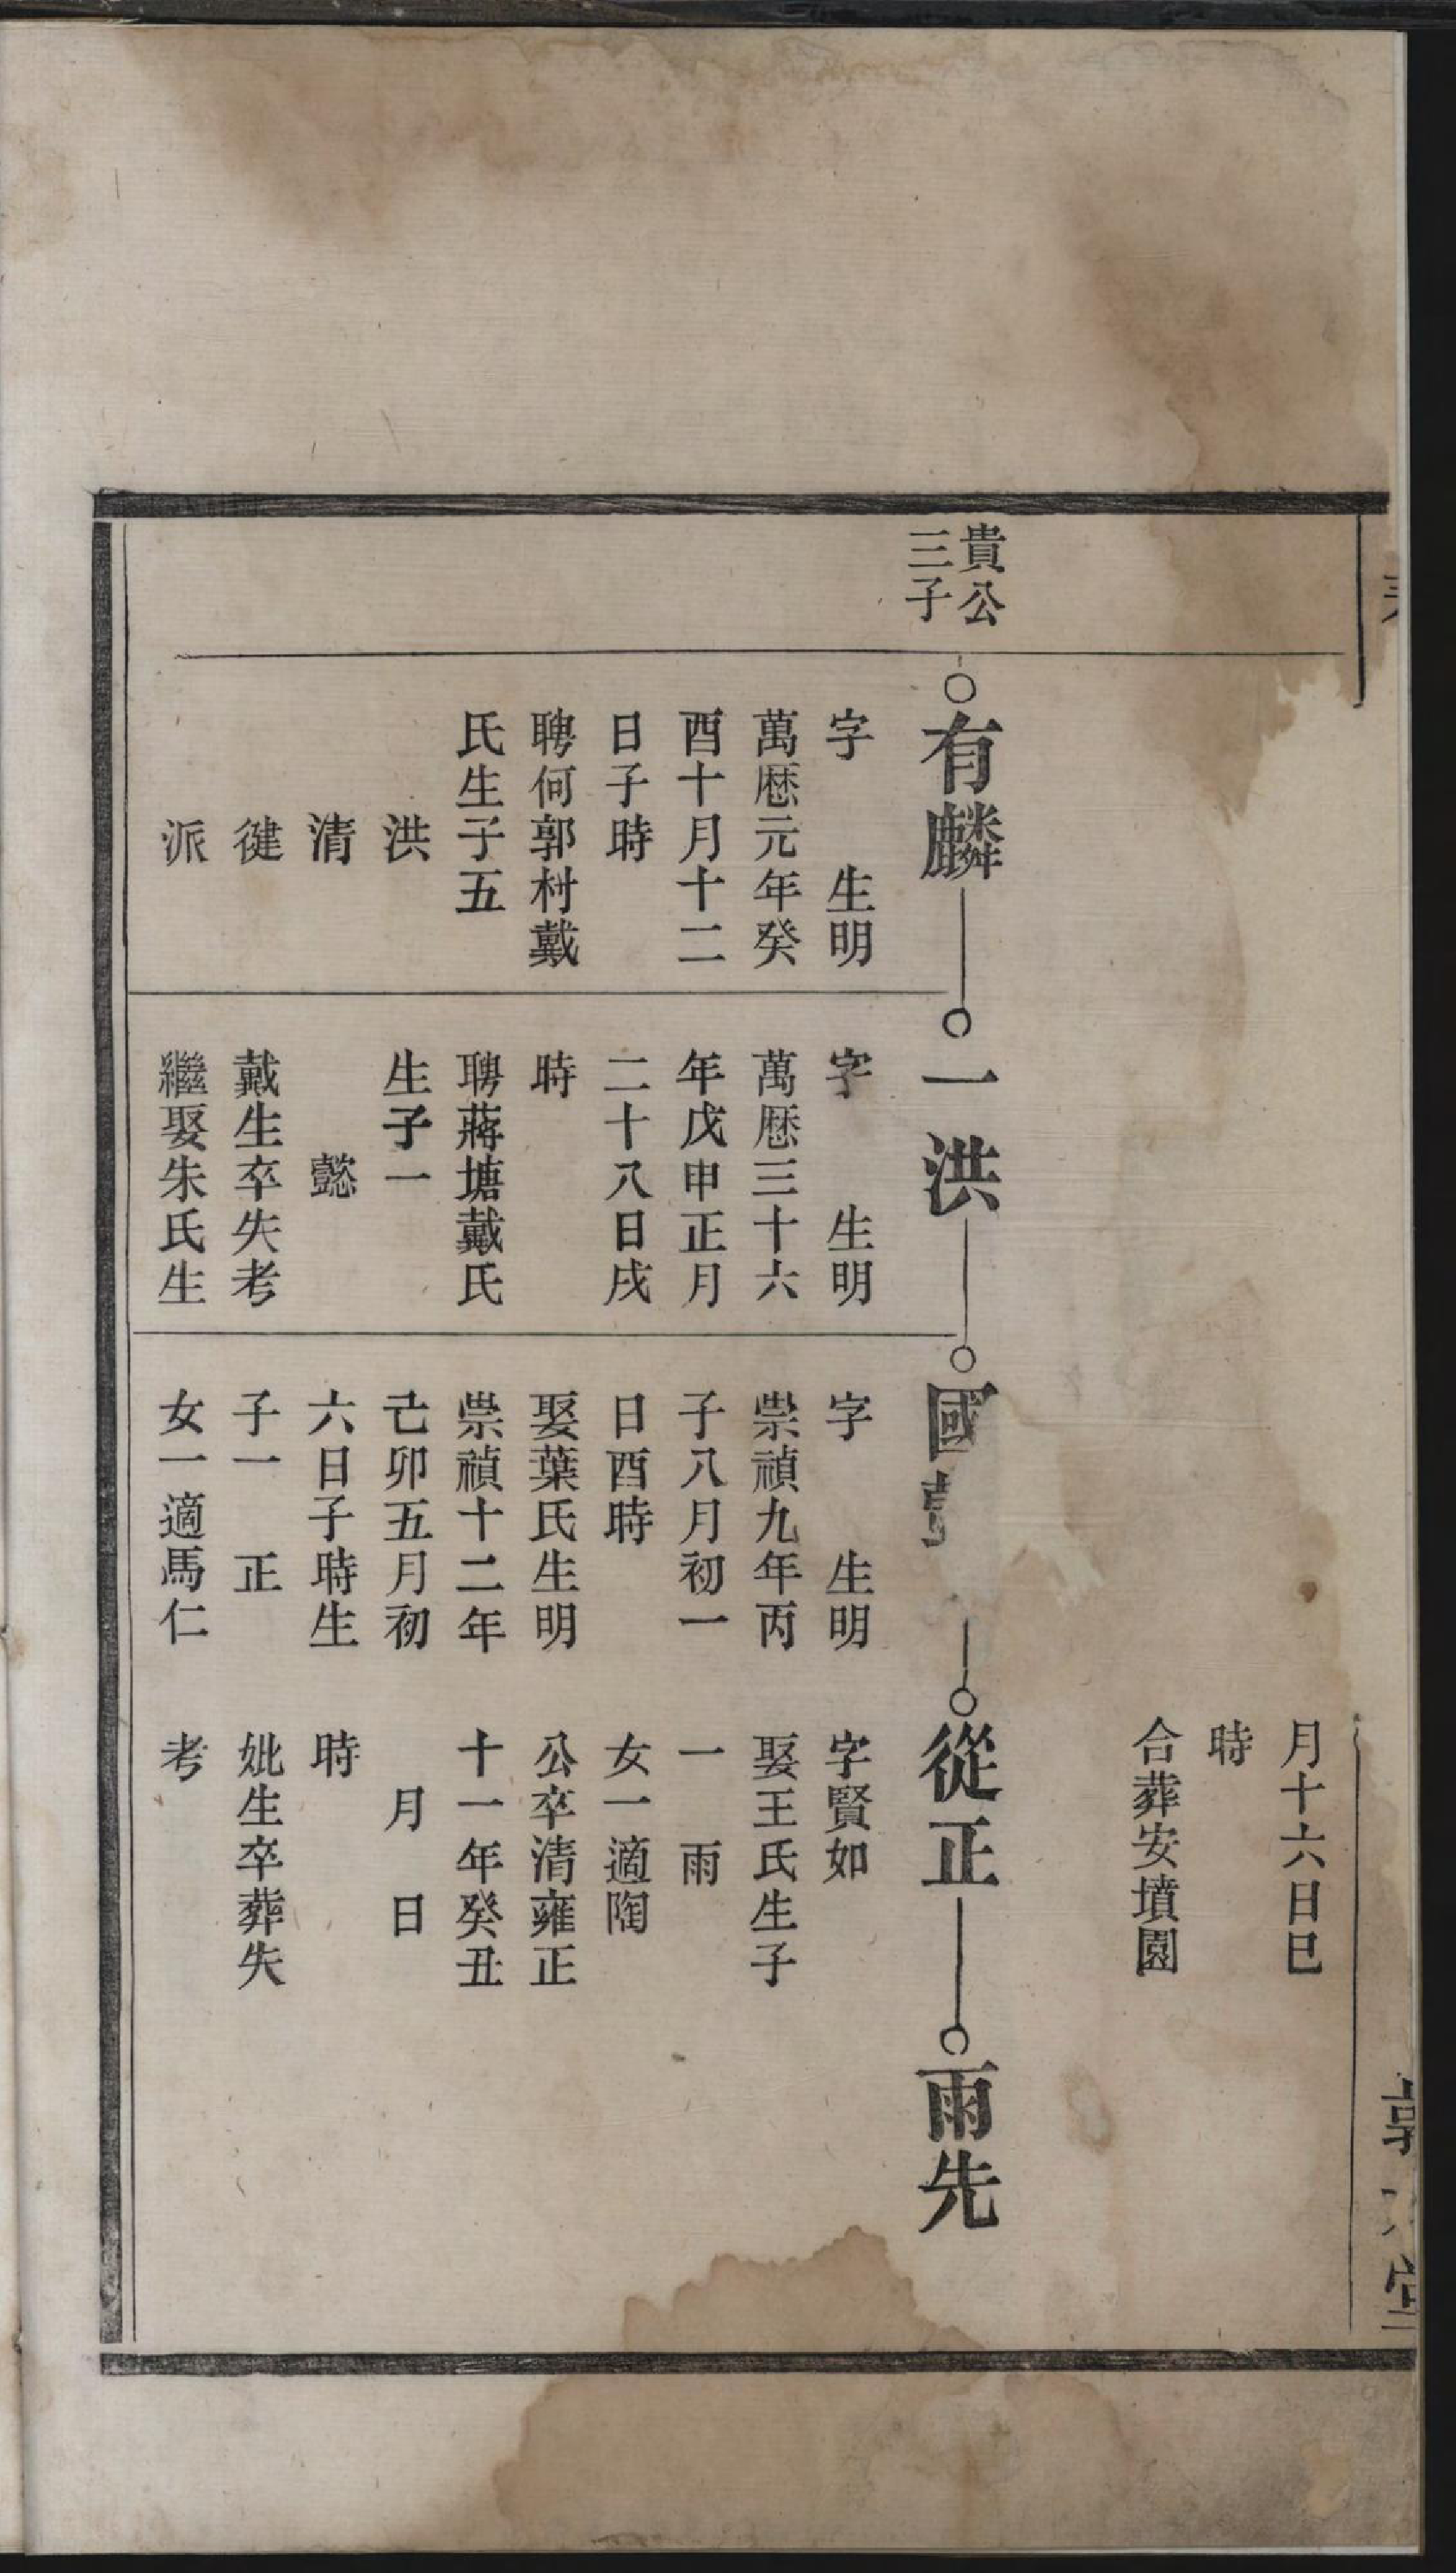 月十六日巳
時
合葬安墳園
貴公
三子
有麟
字 生明
萬厯元年癸
酉十月十二
日子時
聘何郭村戴
氏生子五
洪
清
健
派
一洪
字 生明
萬厯三十六
年戊申正月
二十八日戌
時
聘蔣塘戴氏
生子一
懿
戴生卒失考
繼娶朱氏生
國
字 生明
崇禎九年丙
子八月初一
日酉時
娶葉氏生明
崇禎十二年
己卯五月初
六日子時生
子一 正
女一適馬仁
從正
字賢如
娶王氏生子
一 雨
女一適陶
公卒清雍正
十一年癸丑
月 日
時
妣生卒葬失
考
雨先